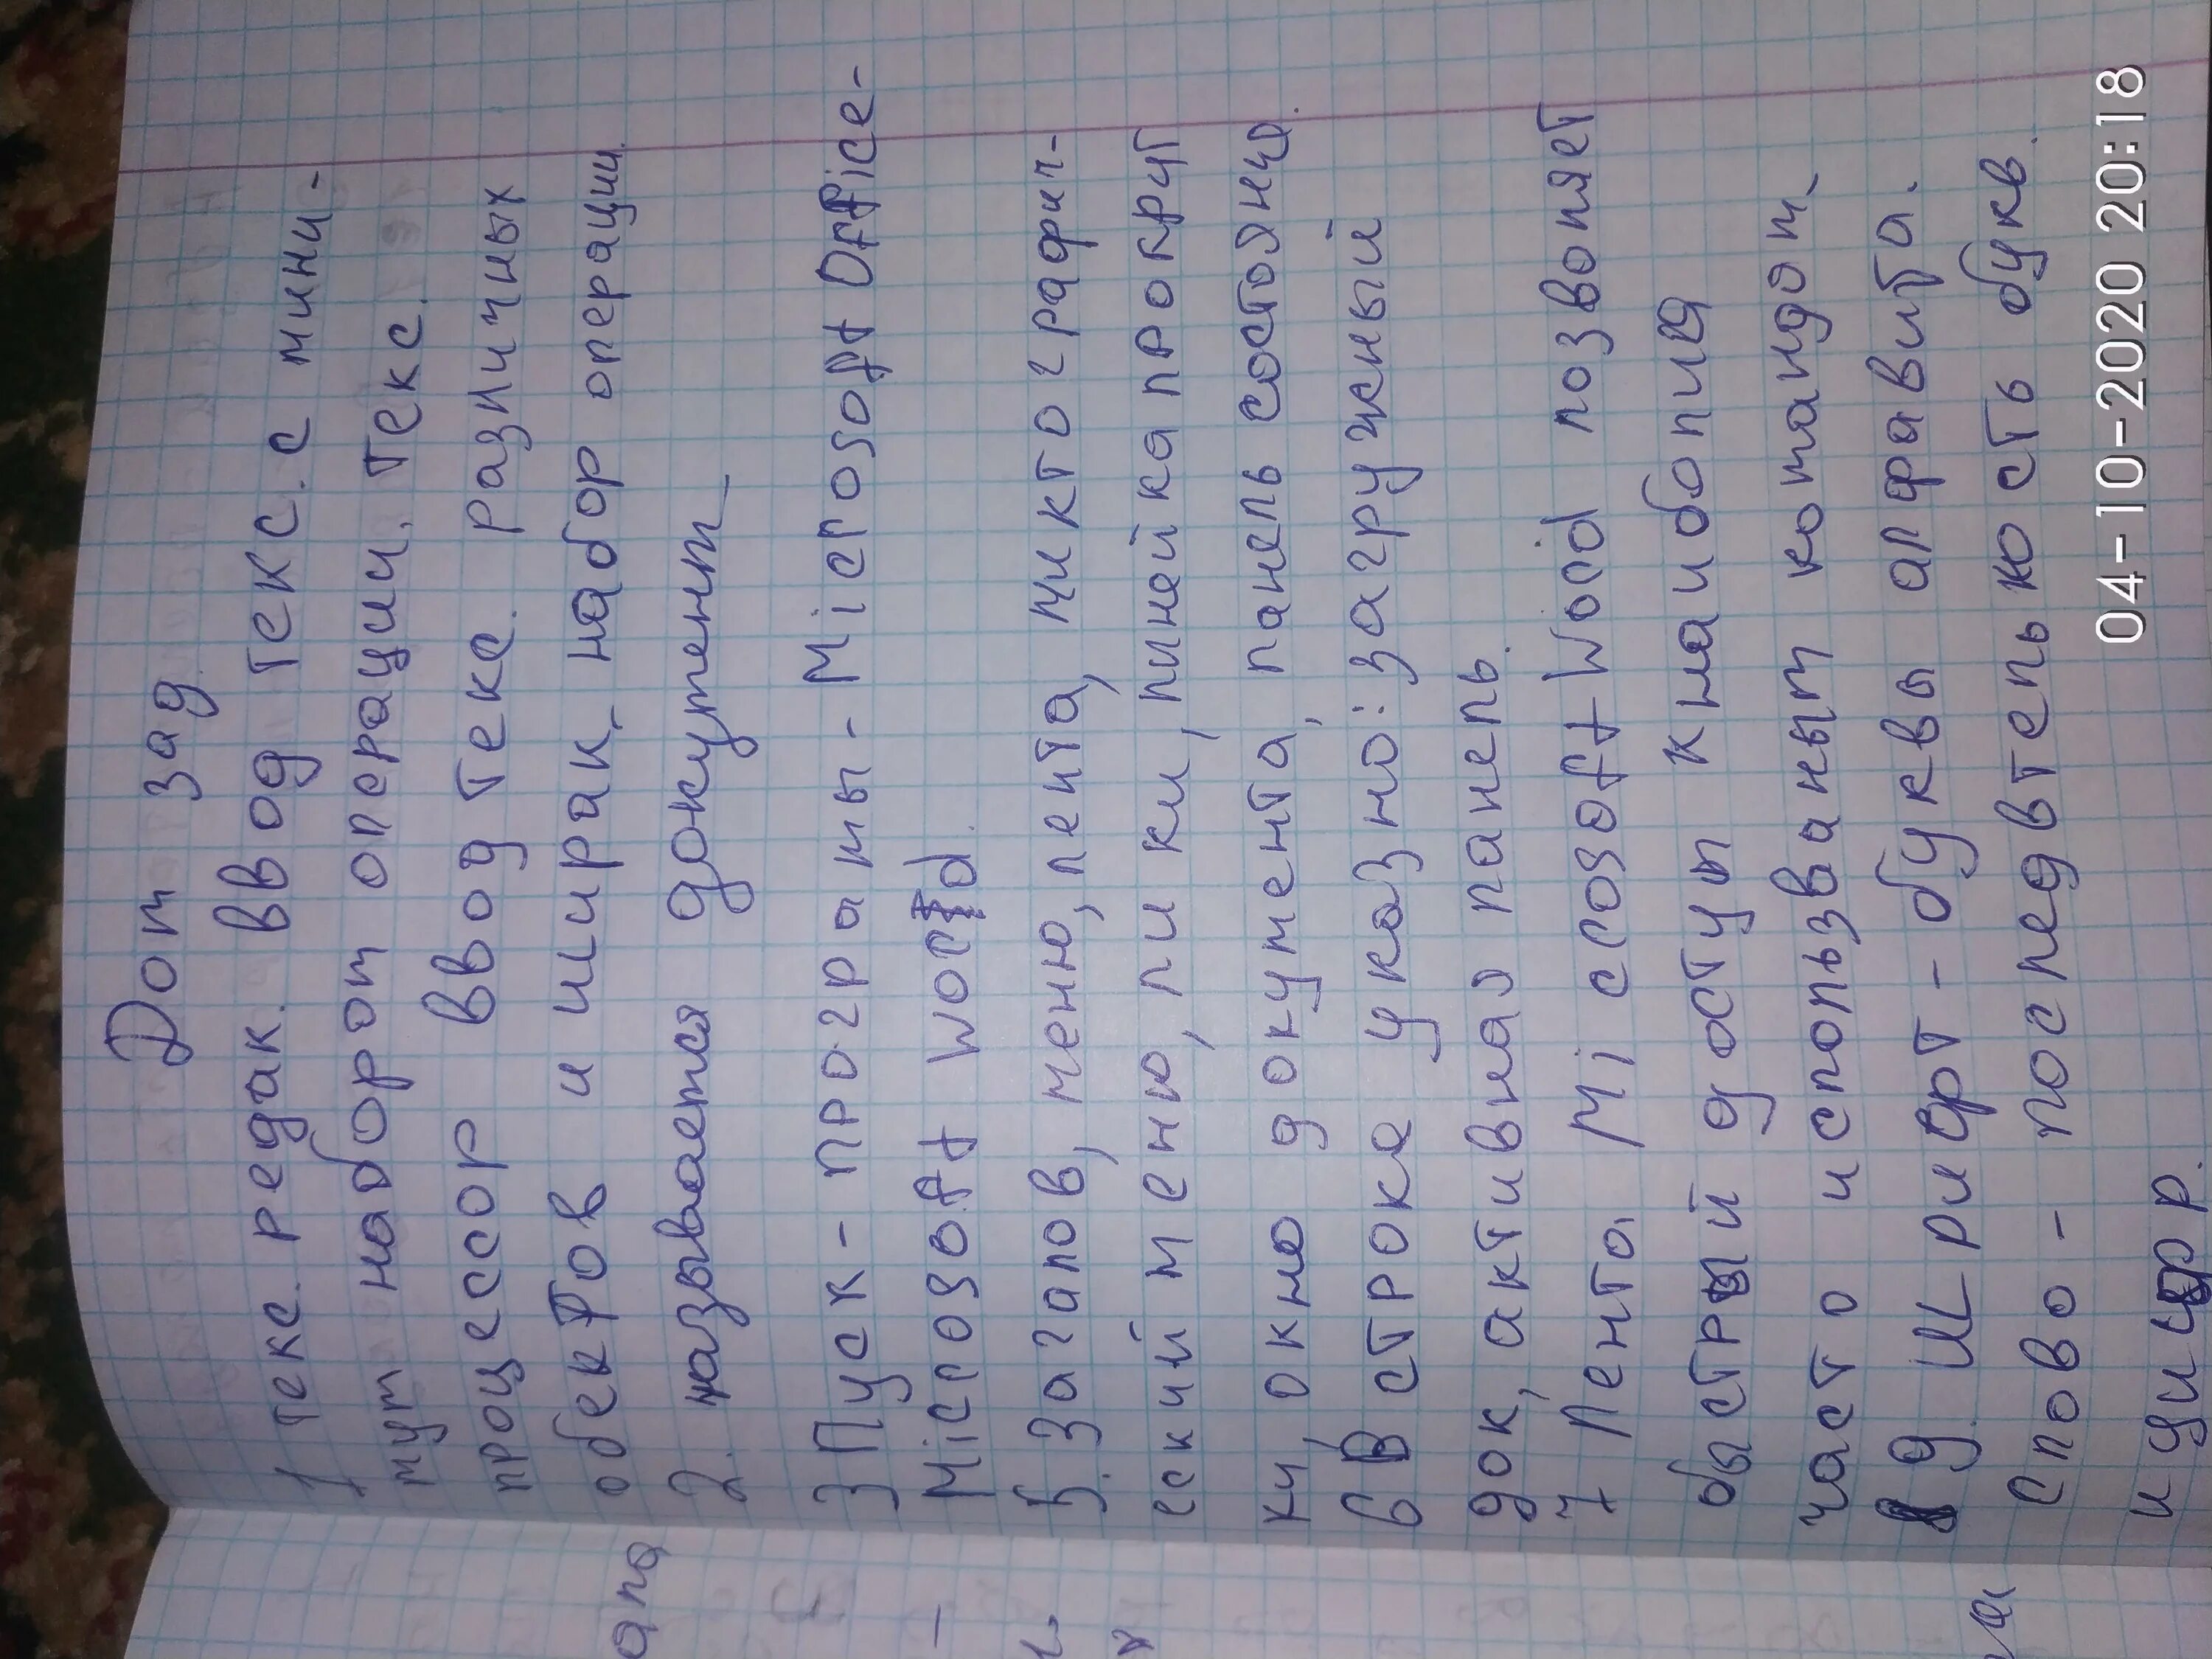 Дом зад.
1 текс. редак. ввод текс. с мини-
мум набором операции. Текс.
процессор ввод текс. различных
обектов и ширак. набор операции.
2. называется документ
3 Пуск - програмы - Microsoft Office -
Microsoft Word.
5. Заголов, меню, лента, миктографич-
еский меню, лики, линейка прокрут
ки, окно документа, панель состояню.
6 В строке указно: загружный
док, активная панель.
7 Лента. Microsoft Word позволяет
быстрый доступ к наиболия
часто использваным командом
9. Шриорт - буквы алфавита.
слово - последвтелькость букв.
и цифр.
ала
04-10-2020 20:18